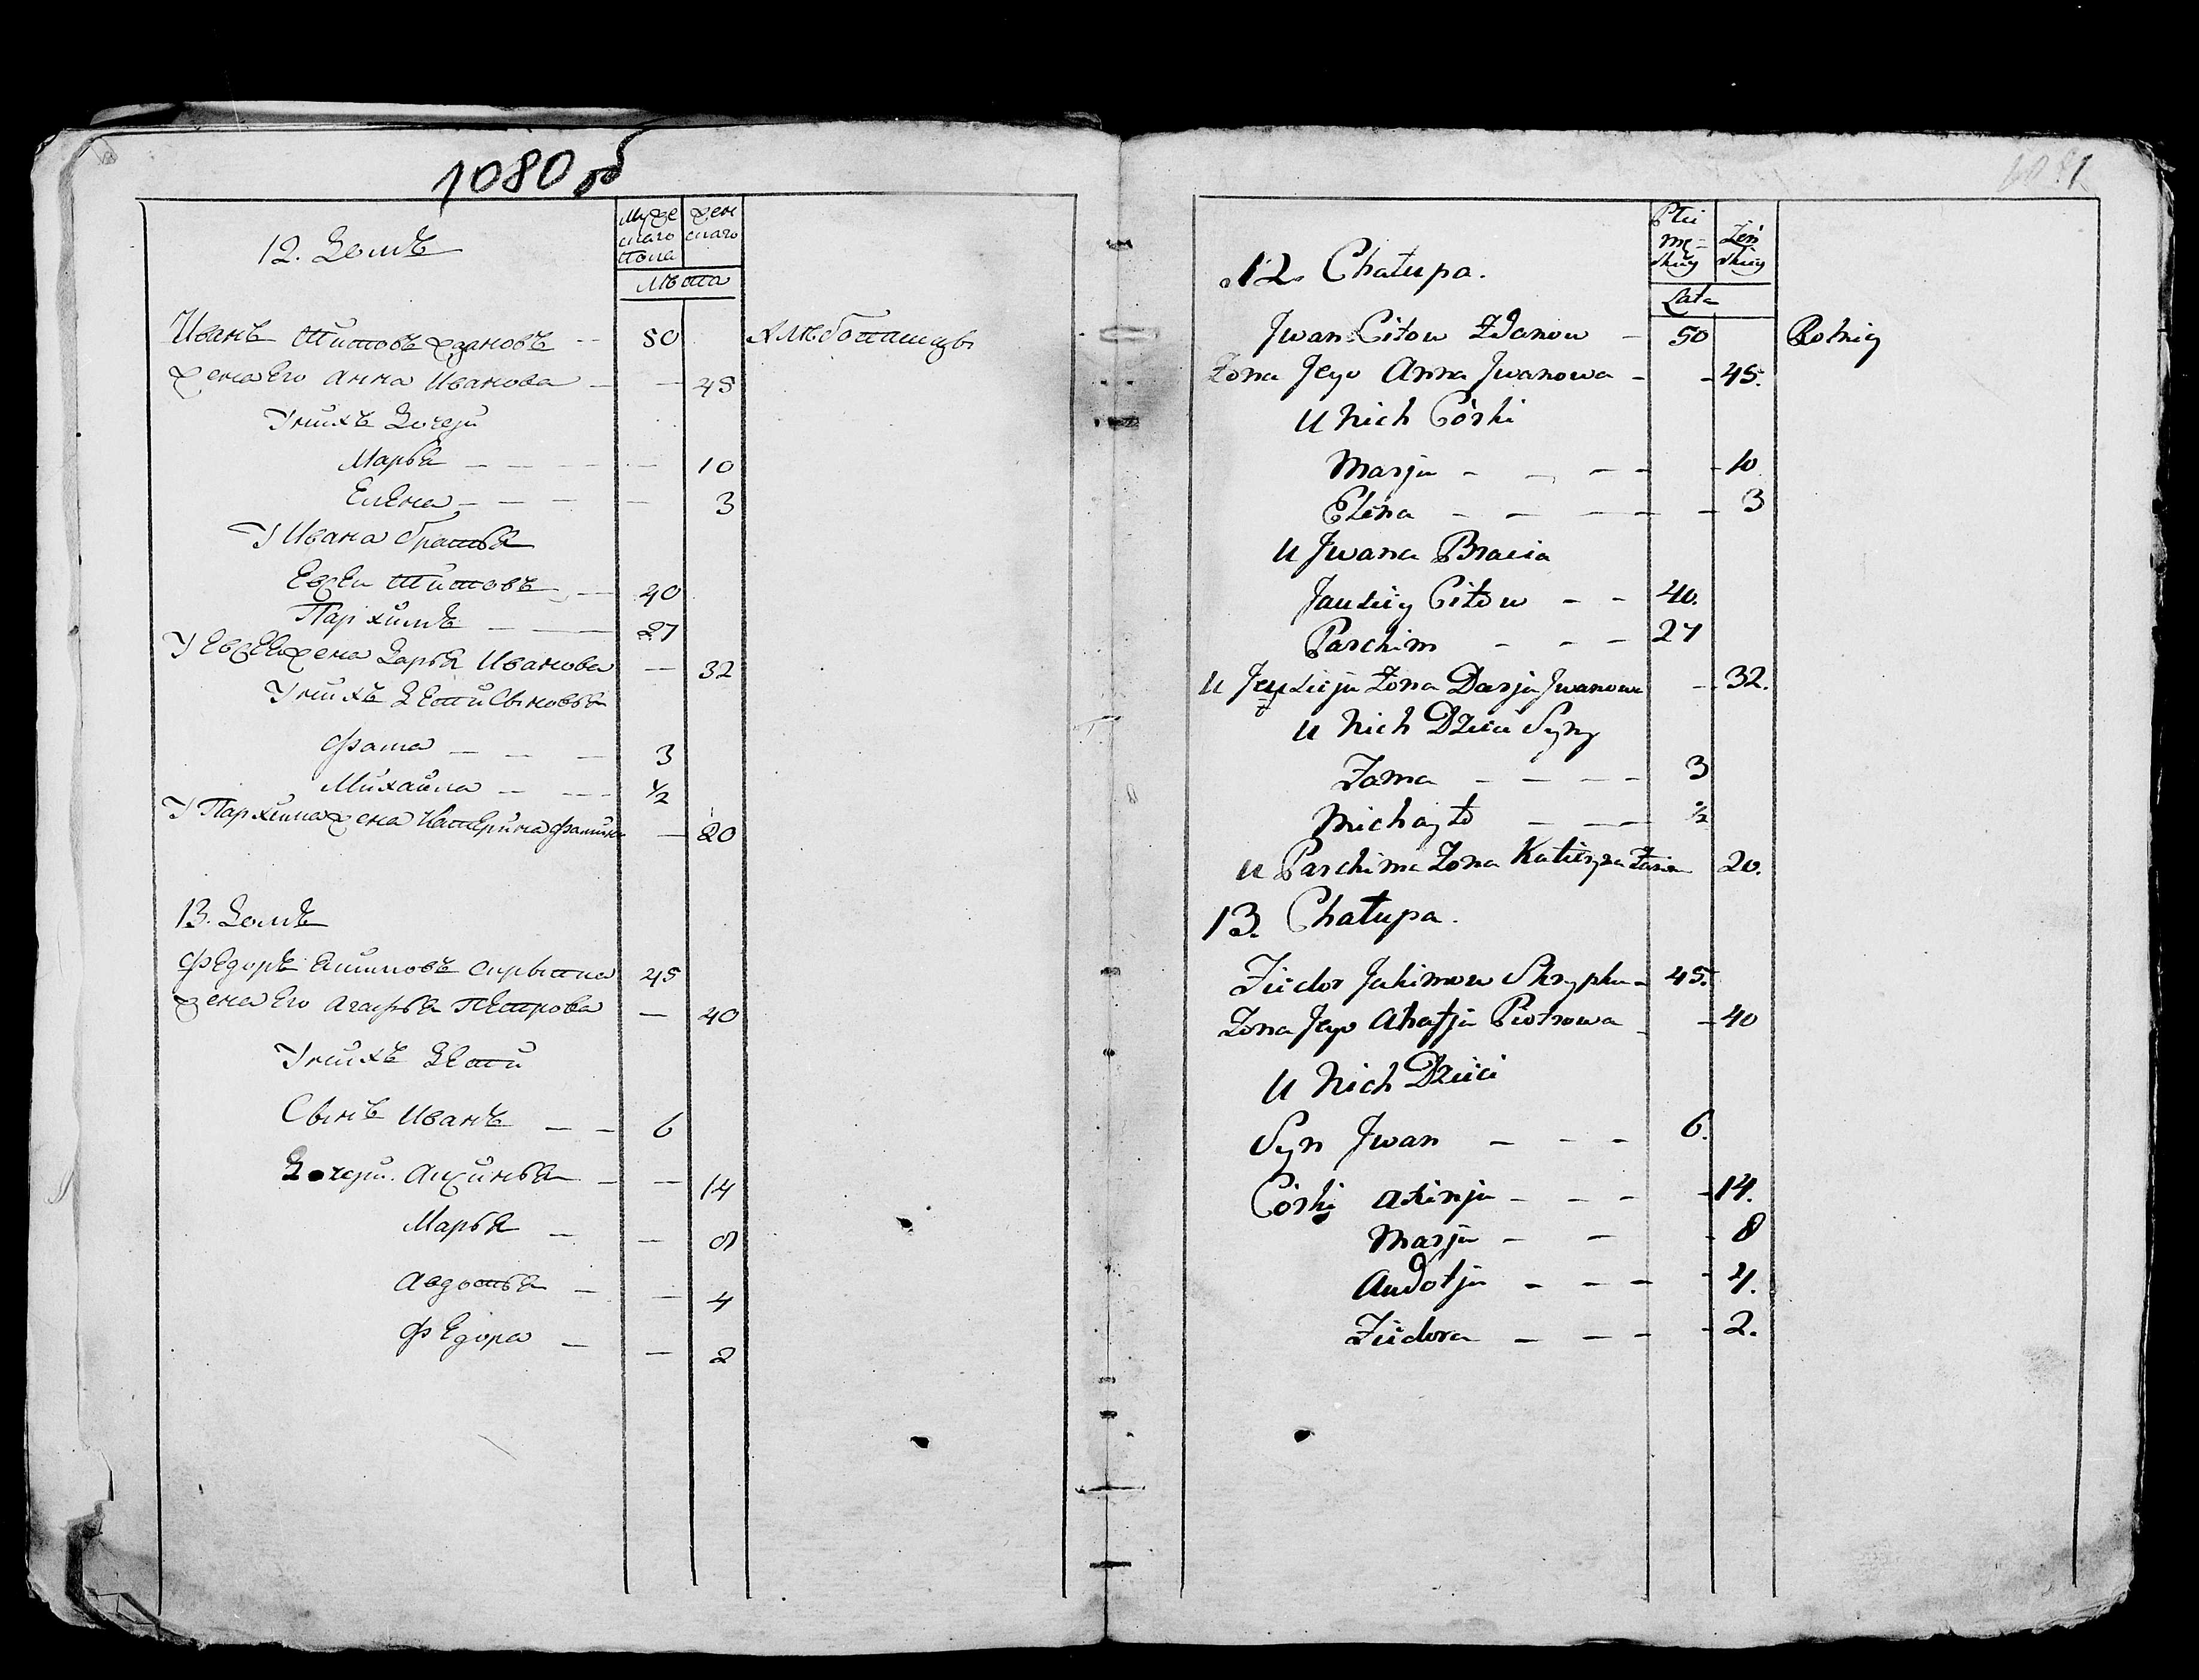 1080 об
Мужескаго пола
женскаго
Лѣта
12. Домъ
Иванъ Титовъ Ждановъ 50 Хлѣбопашцы
Жена Его Анна Иванова 45
У нихъ Дочери
Марья 10
Елена 3
У Ивана братья
Евсѣи Титовъ 40
Пархимъ 27
У Евсѣя жена Дарья Иванова 32
У нихъ Дѣти Сыновья
Фама 3
Михайла ½
У Пархима жена Катерина Фамина 20
13. Домъ
Фёдоръ Якимовъ Скрыпка 45
Жена Его Агафья Петрова 40
У нихъ Дѣти
Сынъ Иванъ 6
Дочери. Аксинья 14
Марья 8
Авдотья 4
Федора 2
1081
Płci męskiey
Żeńskiey
Lata
12. Chałupa.
Jwan Citow Żdanow 50 Rolnicy
Żona Jego Anna Jwanowa 45.
U Nich Córki
Marja 10
Elena 3
U Jwana Bracia
Jausiey Citow 40.
Parchim 27
U Jeusieja Żona Darja Jwanowa 32.
U Nich Dzieci Syny
Fama 3
Michayło ½
U Parchima Żona Katieryna Famina 20.
13. Chałupa.
Fiedor Jakimow Skrypka 45.
Żona Jego Ahafja Piotrowa 40
U Nich Dzieci
Syn Jwan 6.
Córki Axinja 14.
Marja 8
Audotja 4.
Fiedora 2.